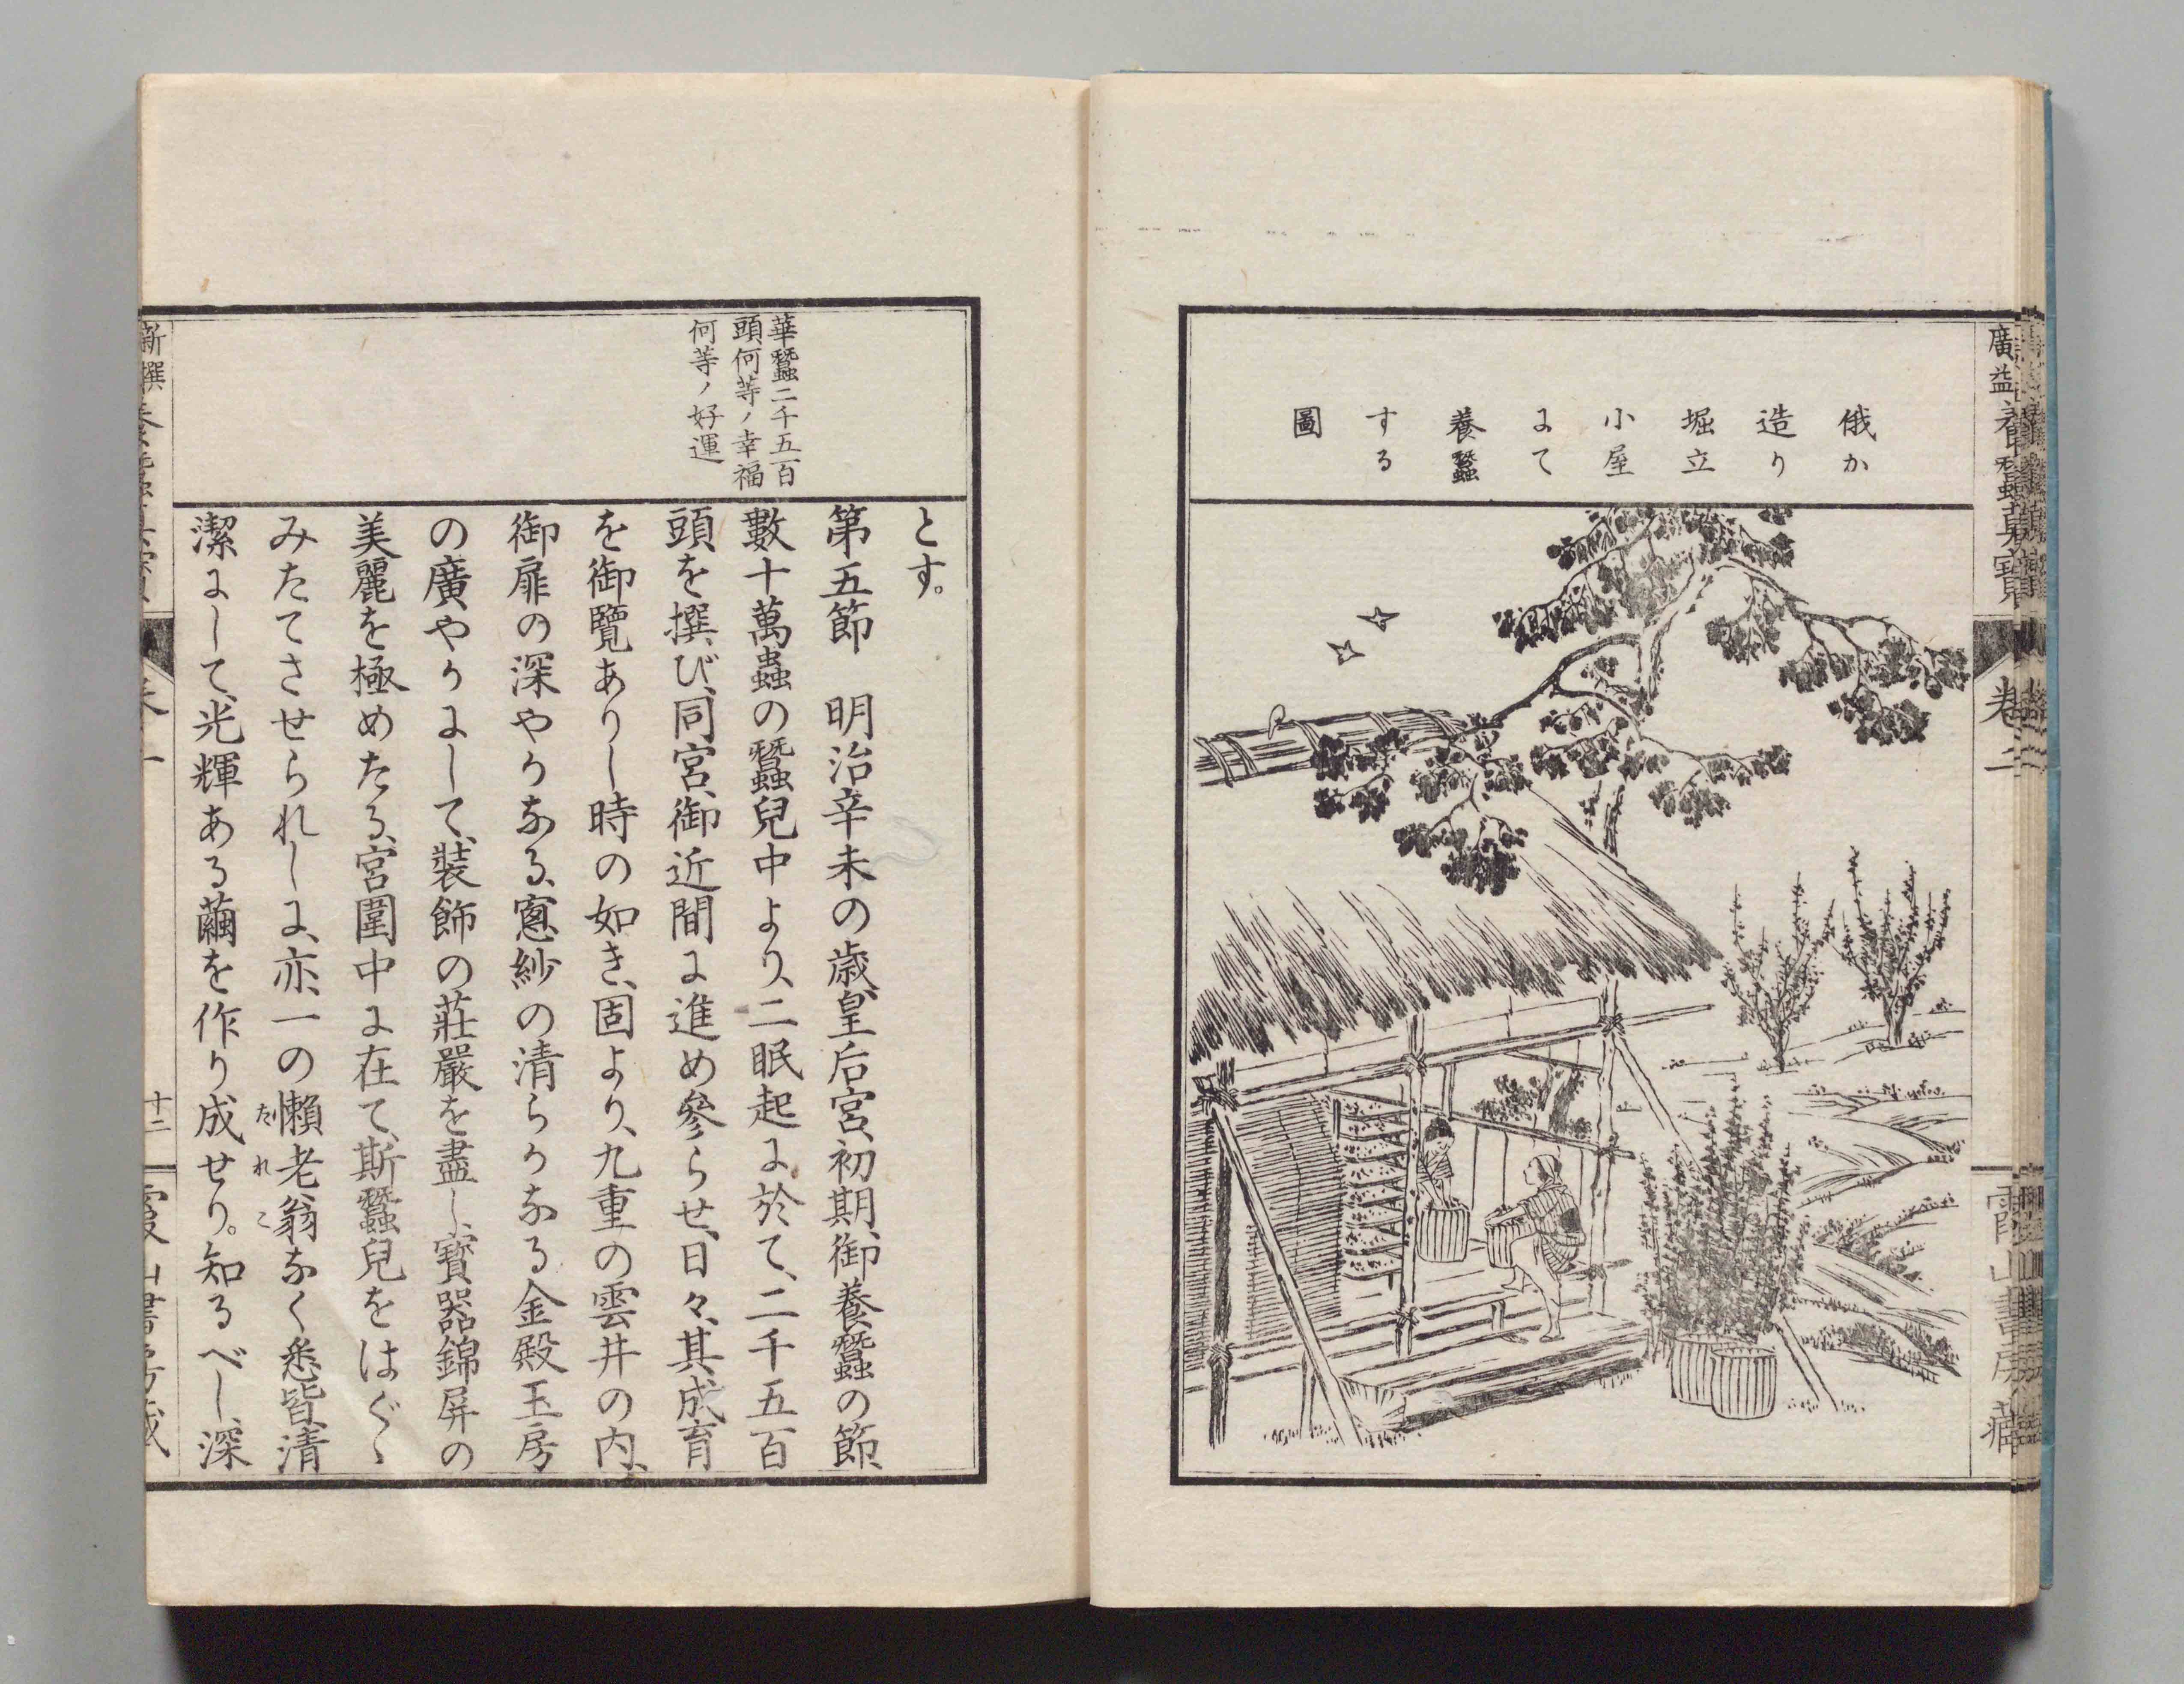 廣益養蠶真寶
卷二
霞山書房藏
俄か
造り
堀立
小屋
にて
養蠶
する
圖
華蠶二千五百
頭何等ノ幸福
何等ノ好運
とす。
第五節　明治辛未の歳、皇后宮、初期、御養蠶の節、
數十萬蟲の蠶兒中より、二眠起に於て、二千五百
頭を撰び、同宮、御近間に進め參らせ、日々、其成育
を御覽ありし時の如き、固より、九重の雲井の内、
御扉の深やかなる、窓紗の清らかなる金殿玉房
の廣やかにして、裝飾の莊嚴を盡し、寳器錦屏の
美麗を極めたる、宮圍中に在て、斯蠶兒をはぐゝ
みたてさせられしに、亦、一の懶老翁なく悉皆、清
たれこ
潔にして、光輝ある繭を作り成せり。知るべし、深
新撰
十二